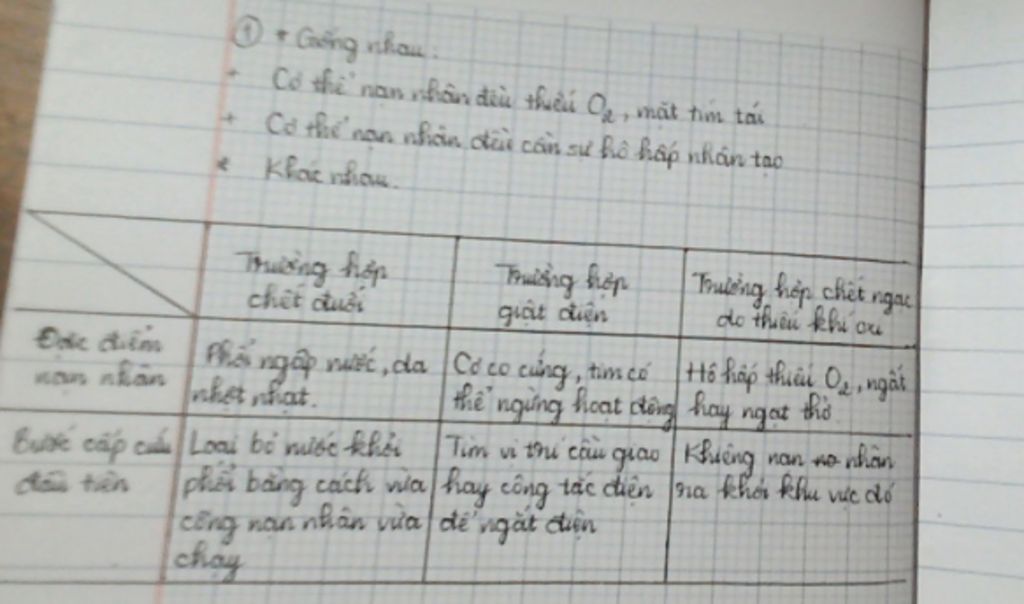 ① * Giống nhau.
+ Cơ thể nạn nhân đều thiếu O₂, mặt tím tái
+ Cơ thể nạn nhân đều cần sự hô hấp nhân tạo
* Khác nhau.
Trường hợp chết đuối
Trường hợp giật điện
Trường hợp chết ngạc do thiếu khí oxi
Đặc điểm nạn nhân
Phổi ngập nước, da nhợt nhạt.
Cơ co cứng, tim có thể ngừng hoạt động
Hô hấp thiếu O₂, ngất hay ngạt thở
Bước cấp cứu đầu tiên
Loại bỏ nước khỏi phổi bằng cách vừa cõng nạn nhân vừa chạy
Tìm vị trí cầu giao hay công tắc điện để ngắt điện
Khiêng nạn nhân ra khỏi khu vực đó